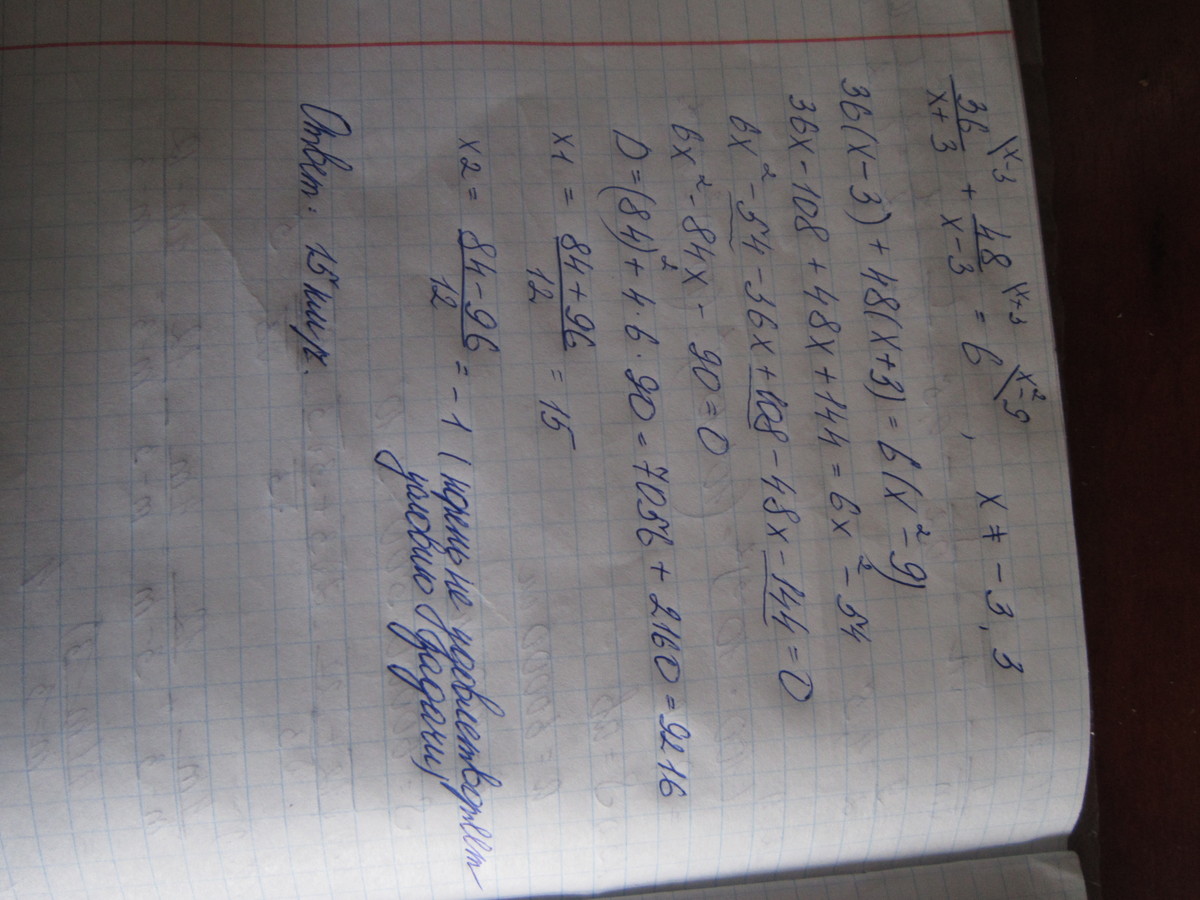 36/(x+3) \x-3 + 48/(x-3) \x+3 = 6 \x²-9 , x ≠ -3, 3
36(x-3) + 48(x+3) = 6(x²-9)
36x - 108 + 48x + 144 = 6x² - 54
6x² - 54 - 36x + 108 - 48x - 144 = 0
6x² - 84x - 90 = 0
D = (84)² + 4·6·90 = 7056 + 2160 = 9216
x1 = (84+96)/12 = 15
x2 = (84-96)/12 = -1 (корень не удовлетворяет
условию задачи)
Ответ: 15 км/ч.